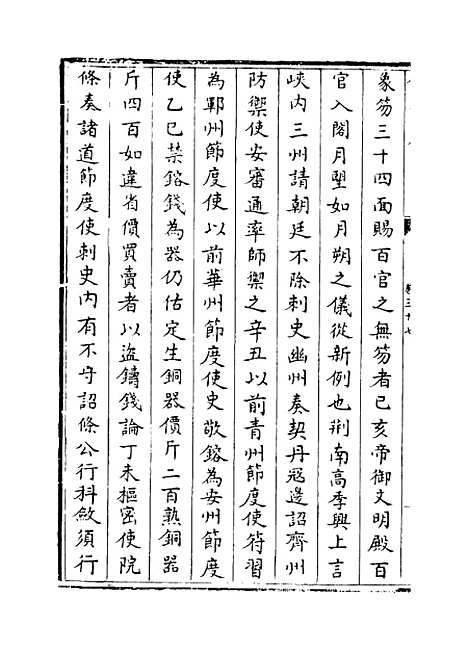 象笏三十四面賜百官之無笏者己亥帝御文明殿百
官入閤月望如月朔之儀從新例也荆南高季興上言
峽内三州請朝廷不除刺史幽州奏契丹寇邊詔齊州
防禦使安審通率師禦之辛丑以前青州節度使符習
為鄆州節度使以前華州節度使史敬鎔為安州節度
使乙巳禁鎔錢為器仍估定生銅器價斤二百熟銅器
斤四百如違省價買賣者以盜鑄錢論丁未樞密使院
條奏諸道節度使刺史内有不守詔條公行科斂須行
卷三十七